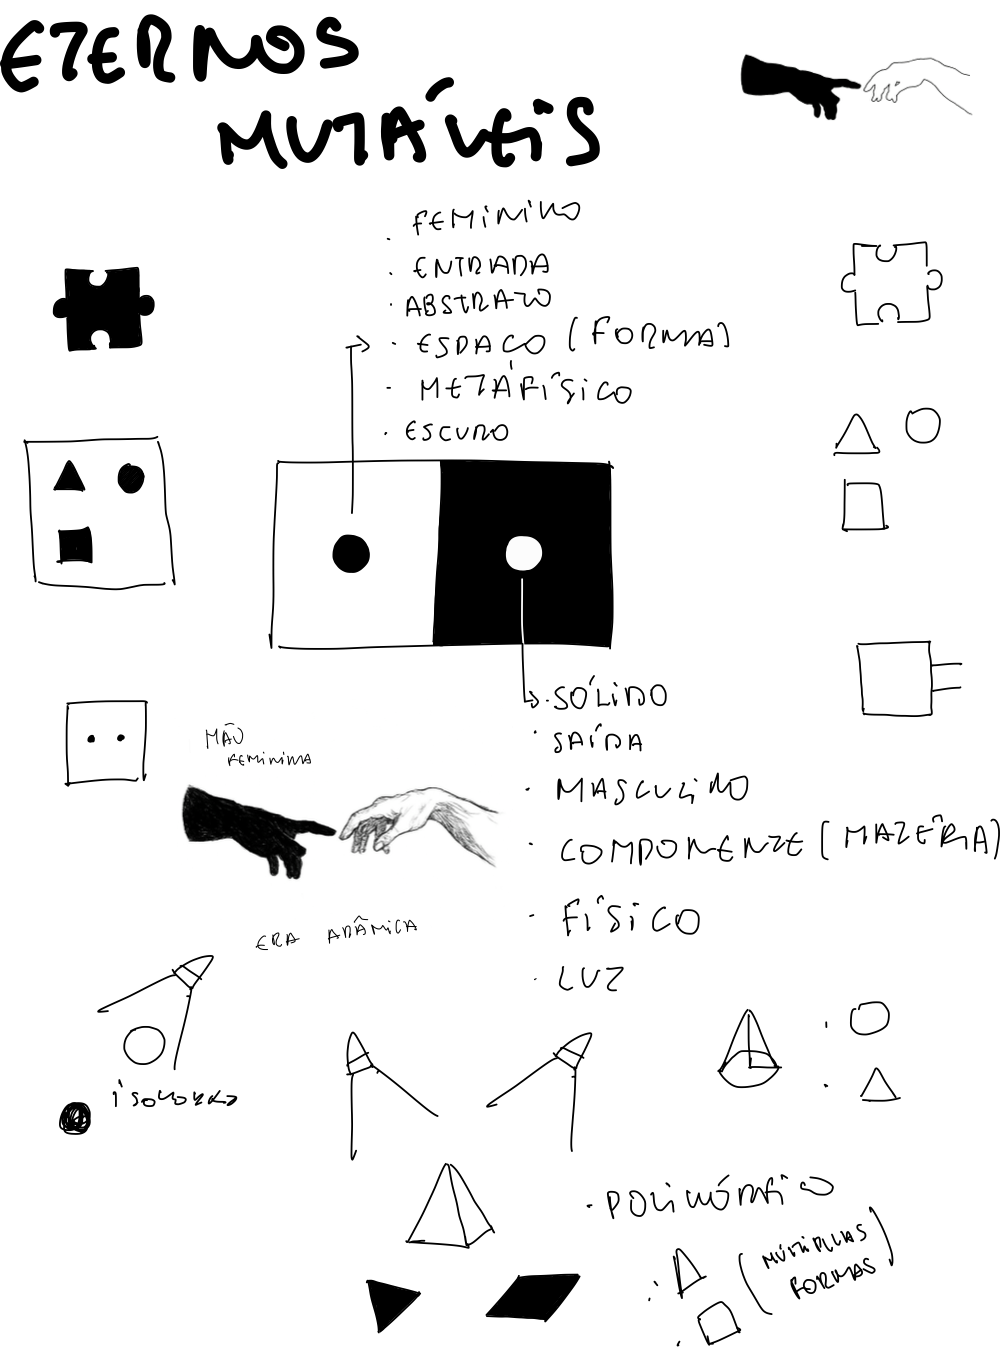 ETERNOS
MUTÁVEIS
· FEMININO
· ENTRADA
· ABSTRATO
· ESPAÇO (FORMA)
· METAFÍSICO
· ESCURO
· SÓLIDO
· SAÍDA
· MASCULINO
· COMPONENTE (MATÉRIA)
· FÍSICO
· LUZ
MÃO
FEMININA
ERA ADÂMICA
· POLIMÓRFICO
(MÚLTIPLAS
FORMAS)